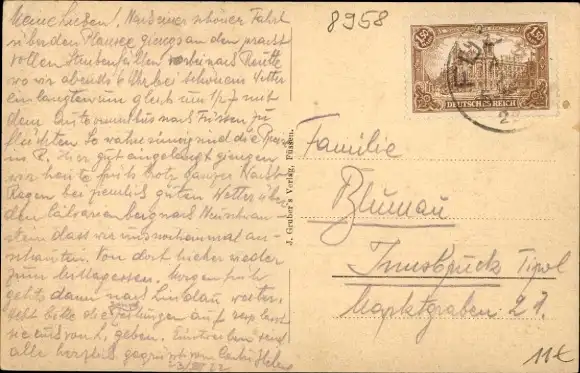 Meine Lieben! Nach einer schönen Fahrt
über den Plansee giengs an den pracht
vollen Stubenfällen vorbei nach Reutte
wo wir abends 6 Uhr bei schönem Wetter
ein langten um gleich um 1/2 7 mit
dem Autoomnibus nach Füssen zu
flüchten. So wahnsinnig sind die Preise
in R. Hier gut angelangt giengen
wir heute früh trotz ganzer Nacht
Regen bei ziemlich guten Wetter über
den Calvarienberg nach Neuschwan-
stein dass wir uns nocheinmal an-
schauten. Von dort hieher wieder
zum Mittagessen. Morgen früh
geht's dann nach Lindau weiter,
bitte die Zeitungen auf
sie uns geben. Einstweilen seid
alle herzlich gegrüsst von
22
8958
1,50
1,50
DEUTSCHES REICH
J. Gruber's Verlag, Füssen.
Familie
Blumau
Innsbruck Tirol
Marktgraben 21.
11€